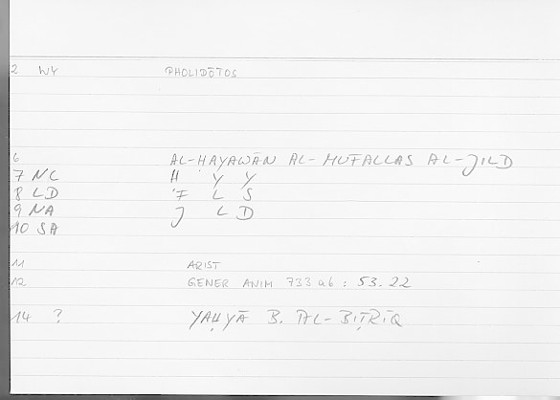 2 WY PHOLIDŌTOS
6 AL-HAYAWĀN AL-MUFALLAS AL-JILD
7 NC Ḥ Y Y
8 LD F L S
9 NA J L D
10 SA
11 ARIST
12 GENER ANIM 733 a6 : 53.22
14 ? YAḤYĀ B. AL-BIṬRĪQ